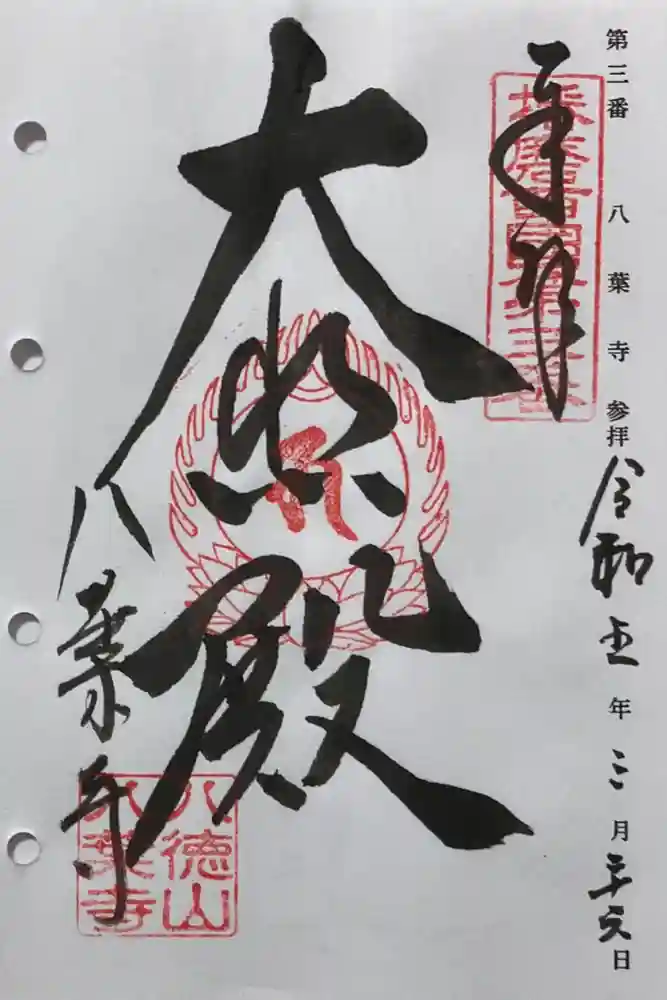 第三番 八葉寺 参拝 令和五年三月二十六日
奉拝
播磨西國第三番
大悲殿
八葉寺
八徳山
八葉寺